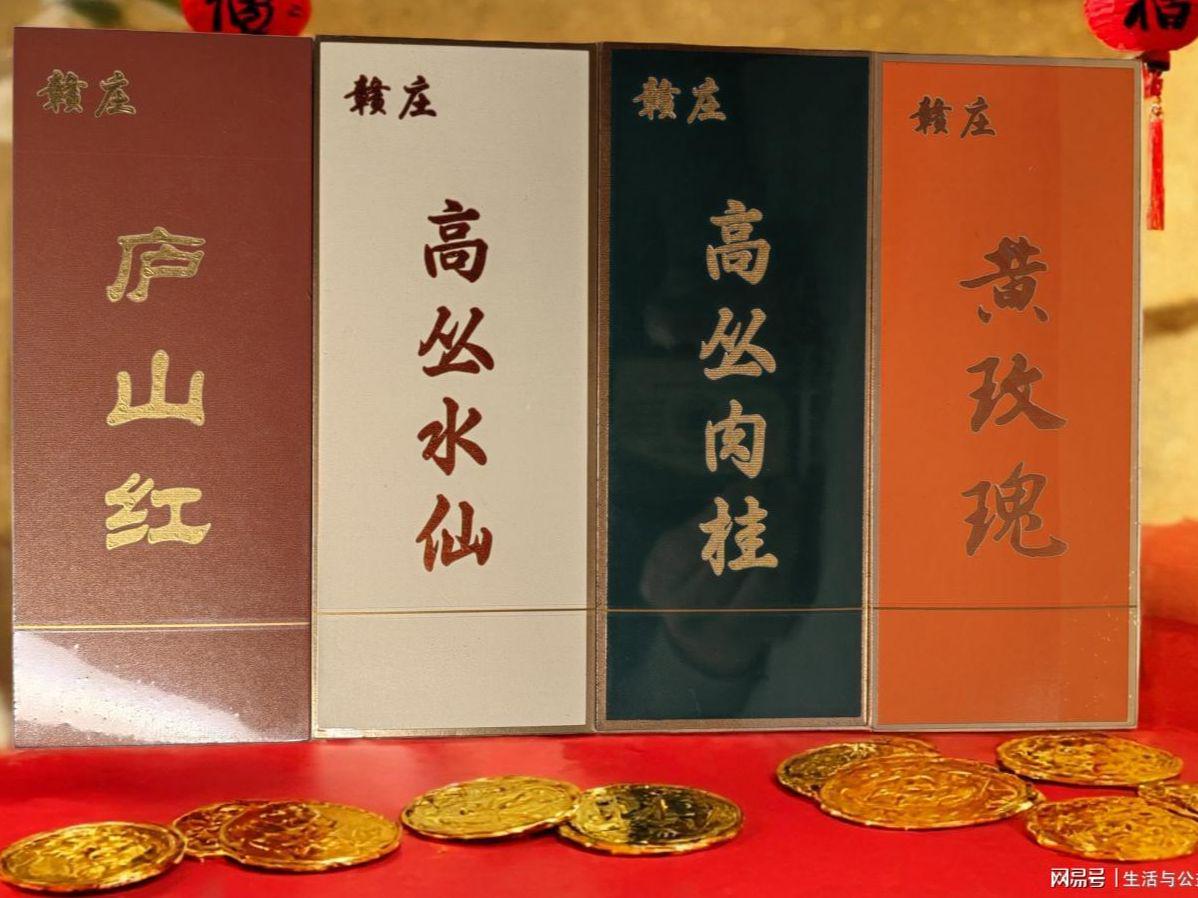 福
福
赣庄
庐山红
赣庄
高丛水仙
赣庄
高丛肉桂
赣庄
黄玫瑰
网易号 | 生活与公